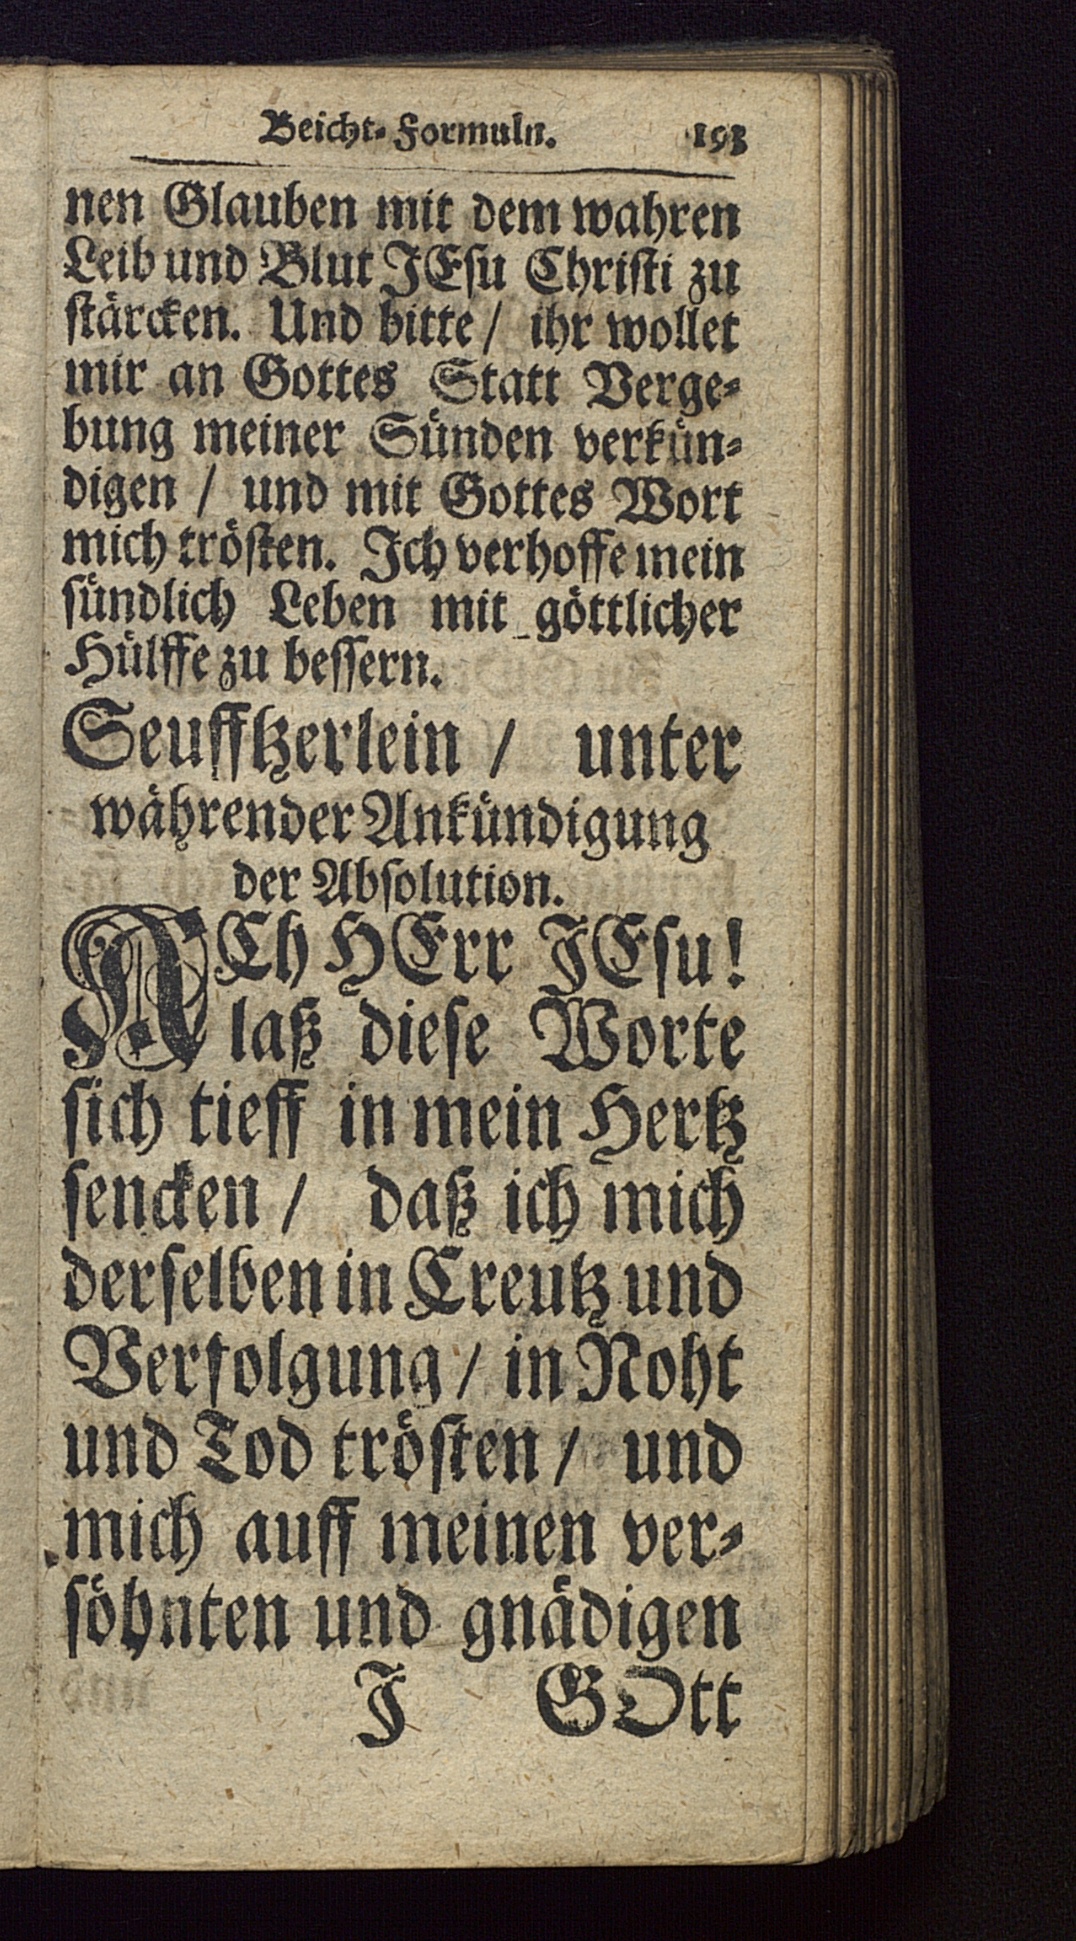 Beicht-Formuln. 193
nen Glauben mit dem wahren
Leib und Blut JEsu Christi zu
stärcken. Und bitte / ihr wollet
mir an Gottes Statt Verge-
bung meiner Sünden verkün-
digen / und mit Gottes Wort
mich trösten. Ich verhoffe mein
sündlich Leben mit göttlicher
Hülffe zu bessern.
Seufftzerlein / unter
währender Ankündigung
der Absolution.
ACh HErr JEsu!
laß diese Worte
sich tieff in mein Hertz
sencken / daß ich mich
derselben in Creutz und
Verfolgung / in Noht
und Tod trösten / und
mich auff meinen ver-
söhnten und gnädigen
J GOtt